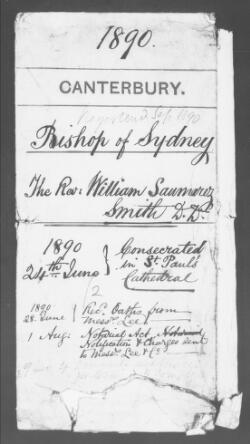 1890.
CANTERBURY.
Registered Sep 1890
Bishop of Sydney
The Rev: William Saumarez
Smith D.D.
1890
24th June
Consecrated
in St. Paul's
Cathedral
2
1890
28. June
Rec. Oaths from
Messrs Lee
1 Aug:
Notarial Act,
Notification & Charges sent
to Messrs Lee & Co